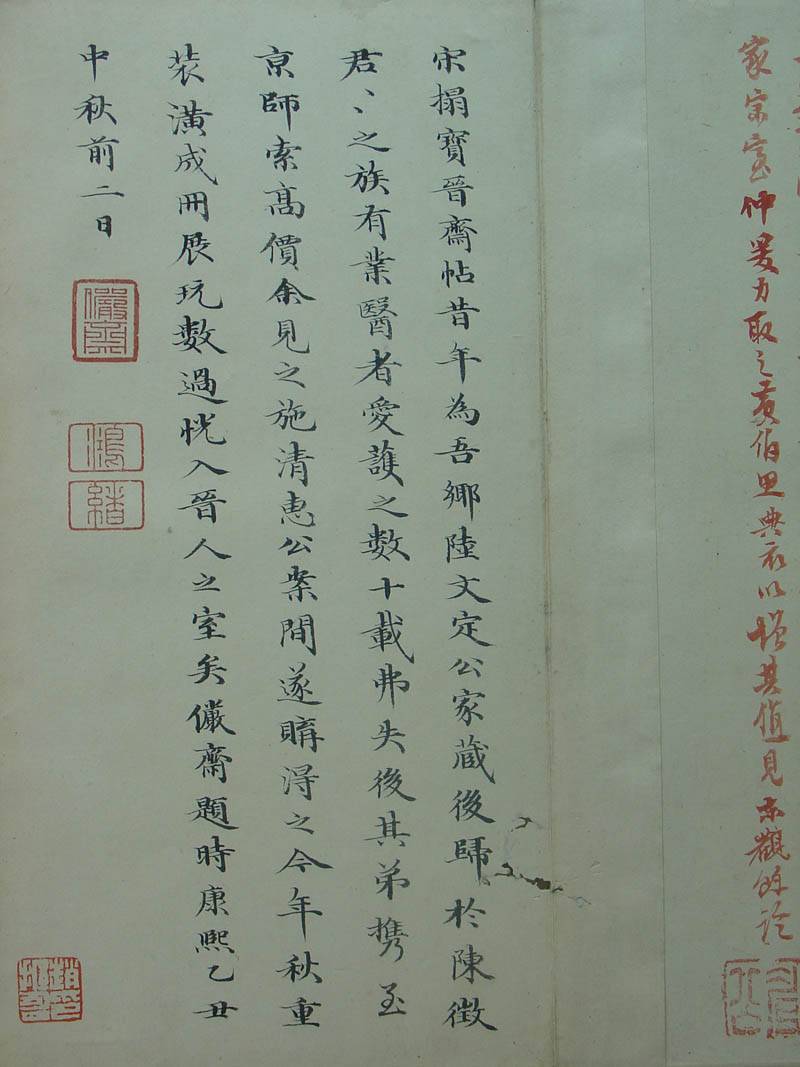 家宗室仲爰力取之黄伯思典衣以增其值見东觀餘论
宋搨寶晉齋帖昔年為吾鄉陸文定公家蔵後歸於陳徵
君〻之族有業醫者愛護之數十載弗失後其弟携至
京師索高價余見之施清惠公案間遂購得之今年秋重
装潢成冊展玩數過恍入晉人之室矣儼齋題時康熙乙丑
中秋前二日
儼齋
鴻緒